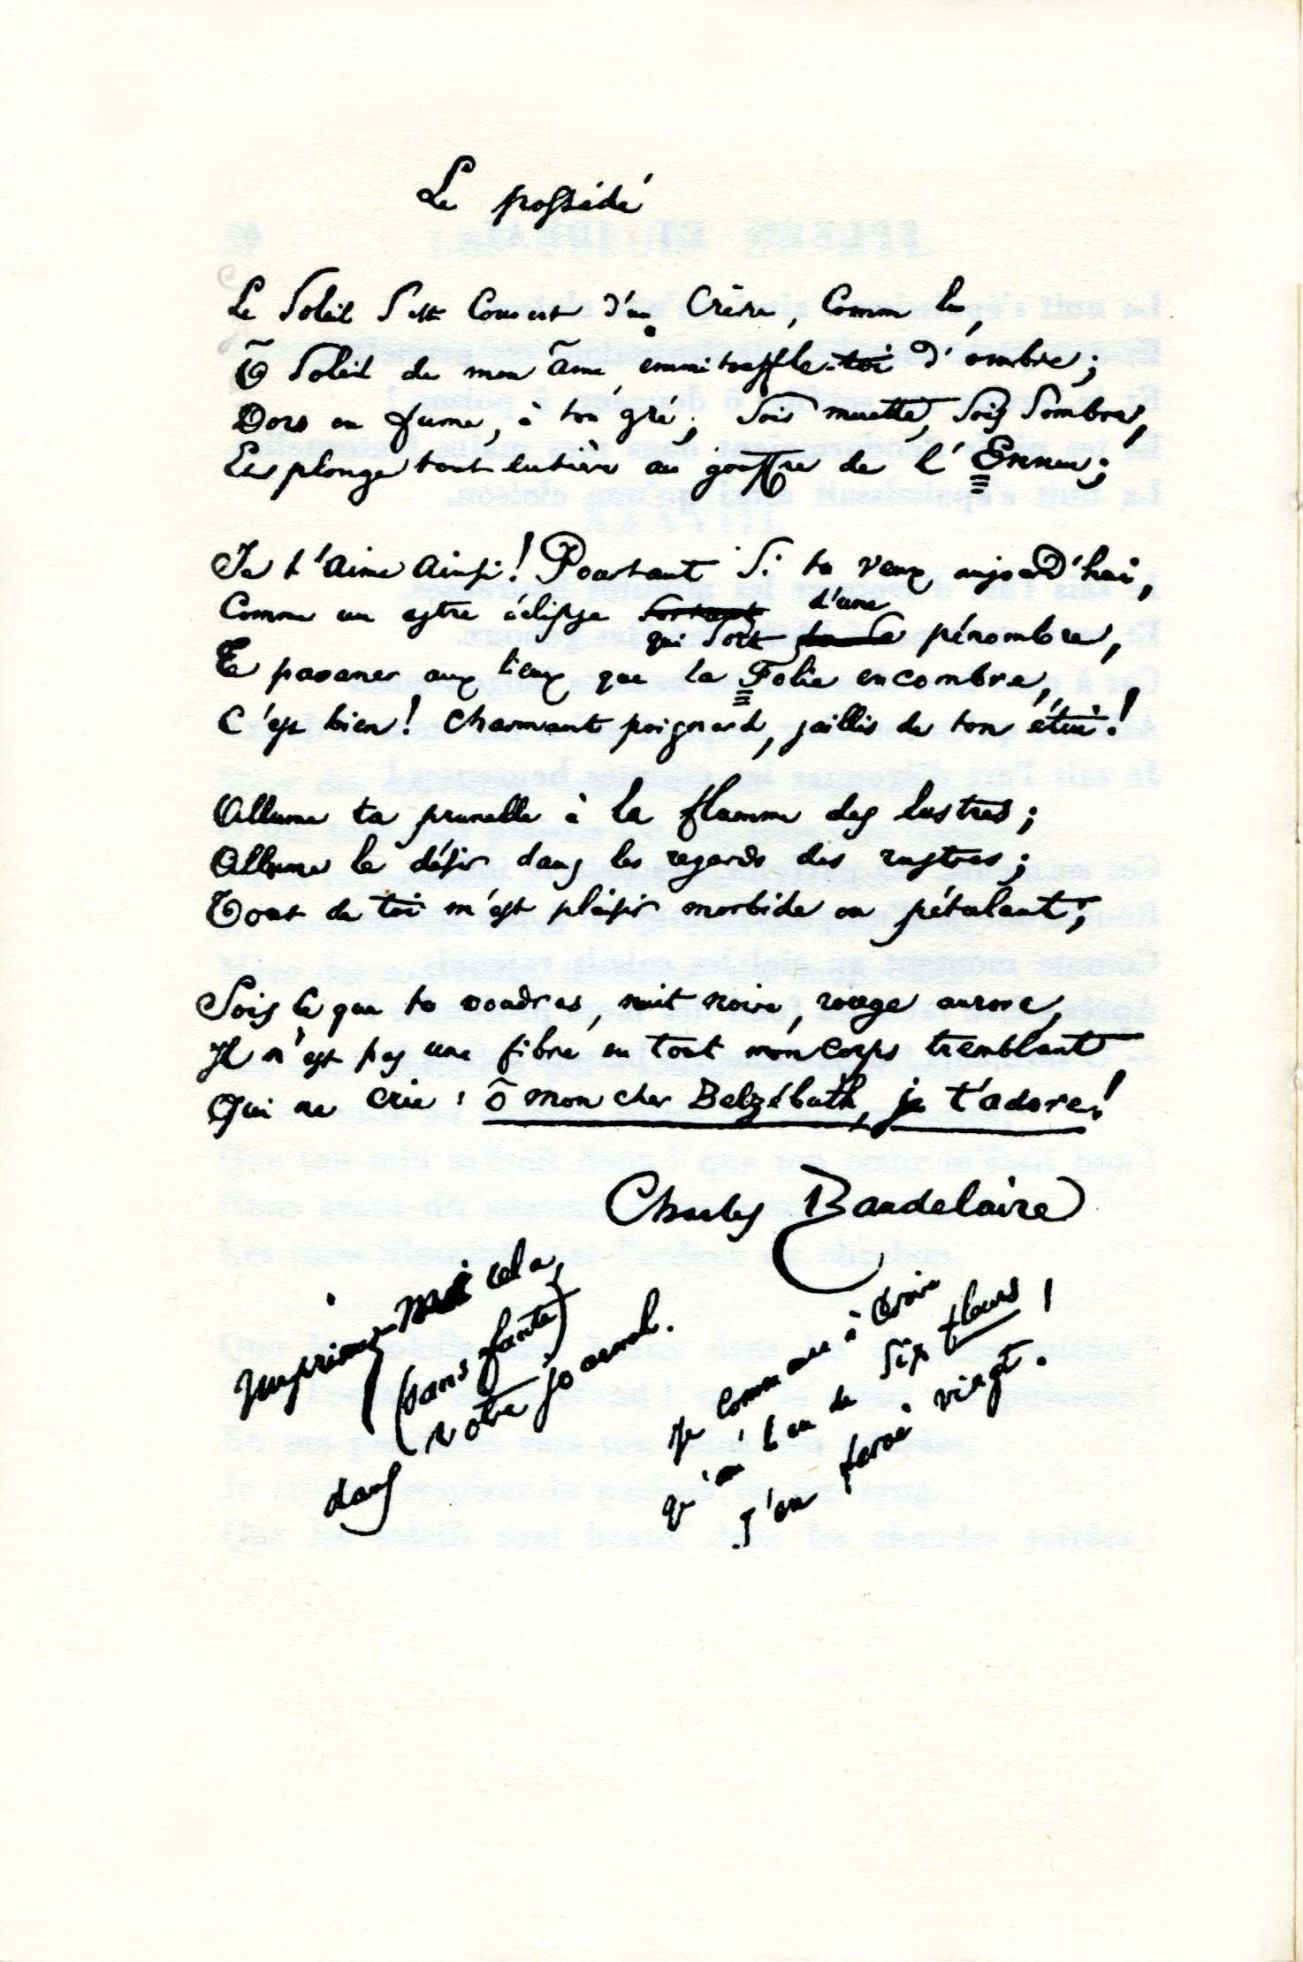 Le possédé
Le Soleil s'est couvert d'un Crêpe, Comme lui,
Ô Soleil de mon âme, emmitouffle-toi d'ombre;
Dors ou fume, à ton gré; Sois muette, Sois Sombre,
Et plonge tout entière au gouffre de l'Ennui;
Je t'aime ainsi! Pourtant Si tu veux aujourd'hui,
Comme un astre éclipsé sortant d'une
qui sort pénombre,
Te pavaner aux lieux que la Folie encombre,
C'est bien! Charmant poignard, jaillis de ton étui!
Allume ta prunelle à la flamme des lustres;
Allume le désir dans les regards des rustres;
Tout de toi m'est plaisir morbide ou pétulant;
Sois ce que tu voudras, nuit noire, rouge aurore,
Il n'est pas une fibre en tout mon corps tremblant
Qui ne crie: ô mon cher Belzébuth, je t'adore!
Charles Baudelaire
Imprimez-moi cela,
(sans faute)
dans votre journal.
Je commence à croire
qu'au lieu de Six fleurs,
j'en ferai vingt.